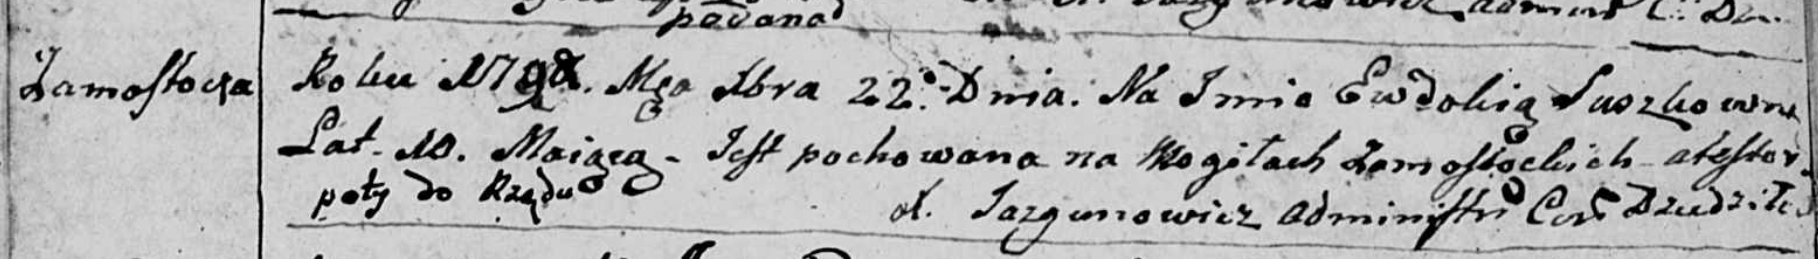 padana
Zamostocza
Roku 1798. Mca Xbra 22. Dnia. Na Imie Ewdokią Suszkowna
Lat. 10. Maiąca - Jest pochowana na Mogiłach Zamostockich atestor
poty do Rządu
A. Jazgunowicz Administr Cer Dziedził